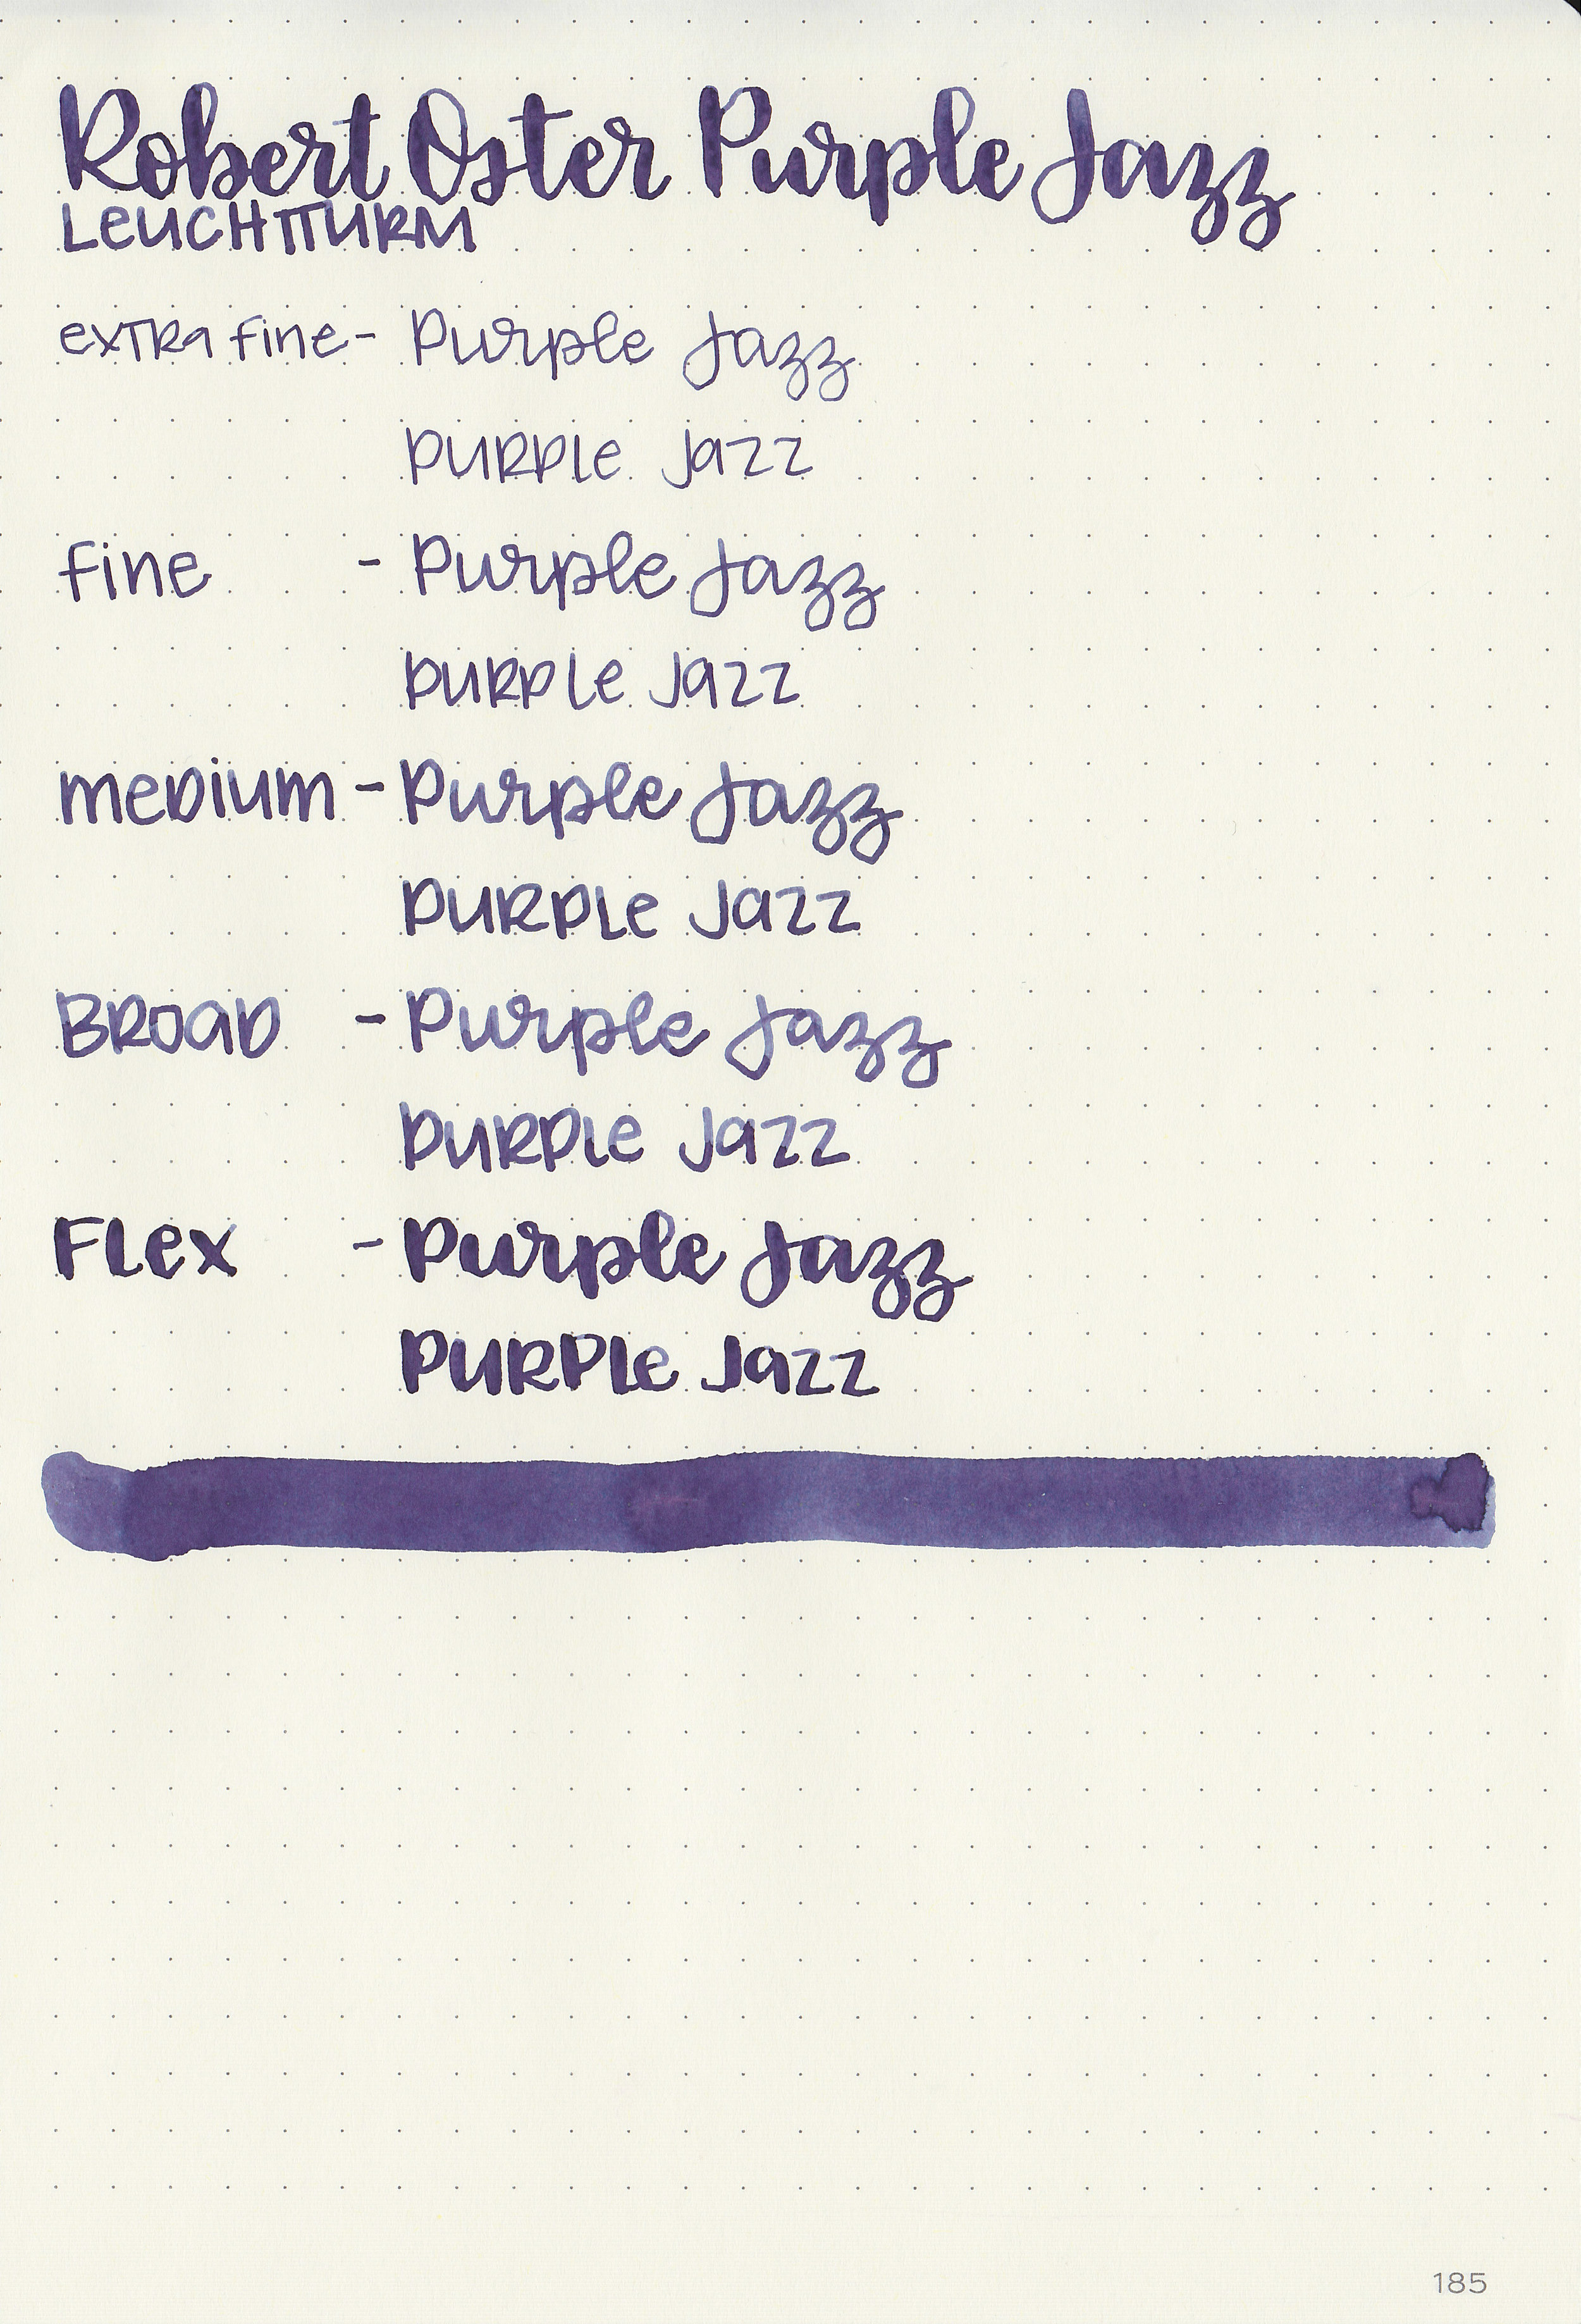 Robert Oster Purple Jazz
LEUCHTTURM
exTRa fine - Purple Jazz
PURPLe Jazz
fine - Purple Jazz
PURPLe Jazz
meDium - Purple Jazz
PURPLe Jazz
BROaD - Purple Jazz
PURPLe Jazz
FLex - Purple Jazz
PURPLe Jazz
185